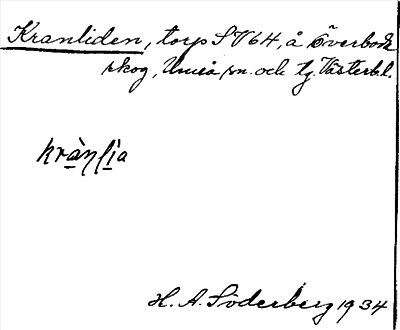 Kranliden, torp S V 64, å Överboda
skog, Umeå sn. och tg. Västerb.l.
krànlìa
H. A. Söderberg 1934